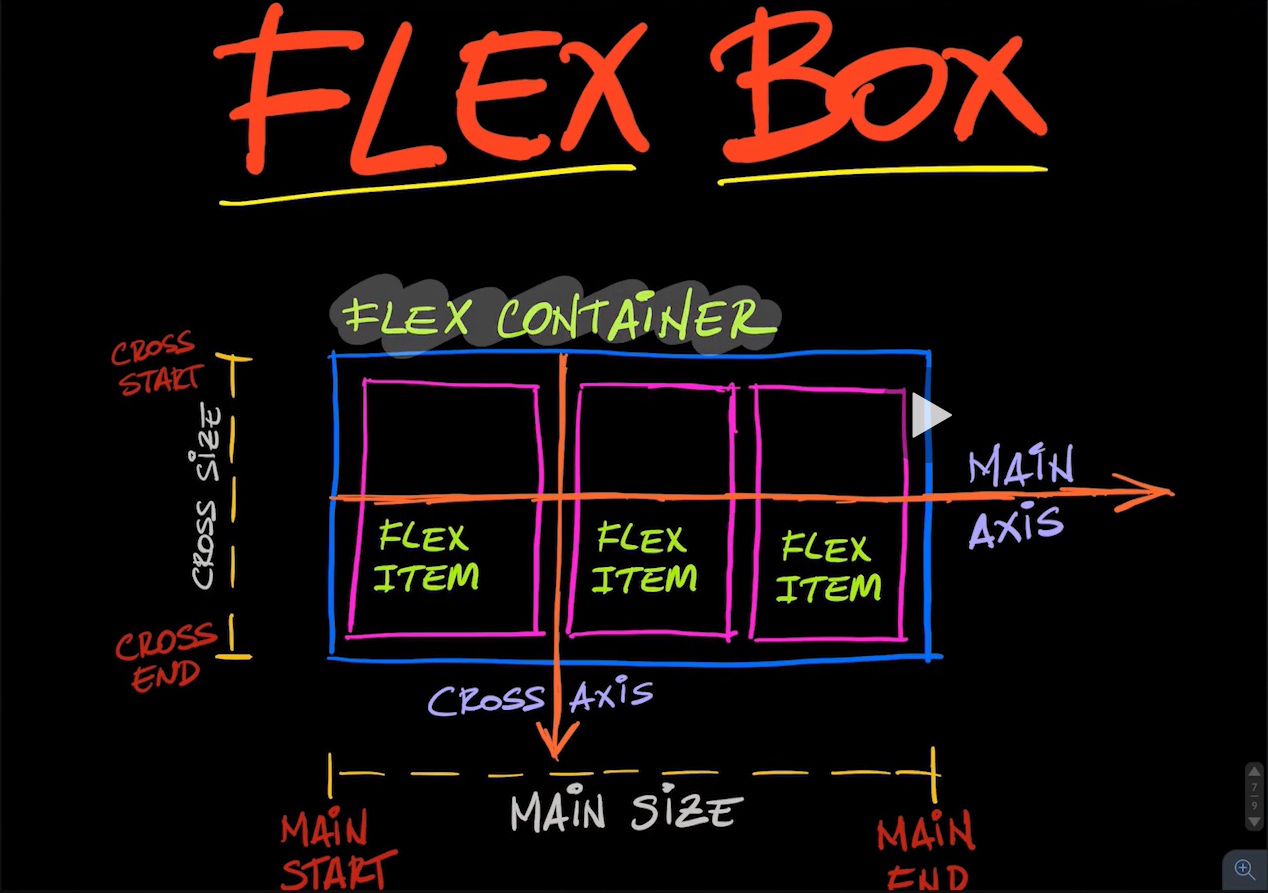 FLEX BOX
FLEX CONTAINER
CROSS
START
CROSS SIZE
CROSS
END
FLEX
ITEM
FLEX
ITEM
FLEX
ITEM
MAIN
AXIS
CROSS AXIS
MAIN SIZE
MAIN
START
MAIN
END
7
9